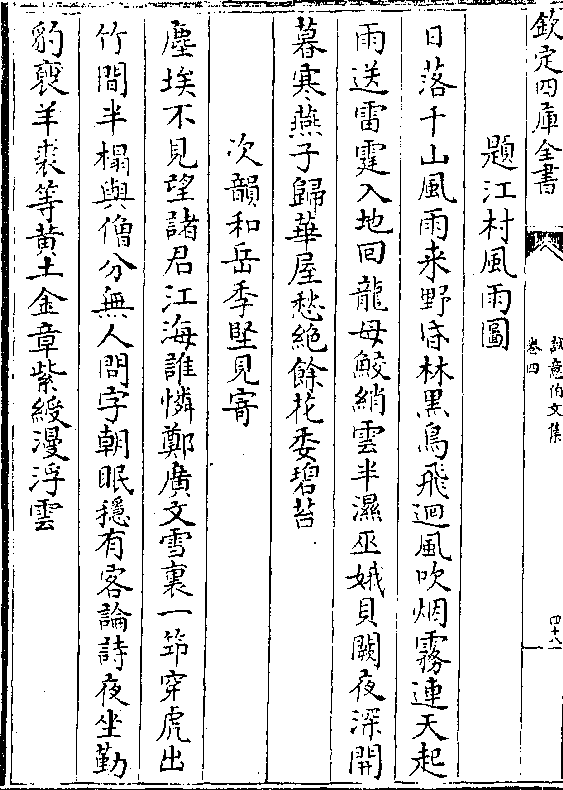 欽定四庫全書
誠意伯文集
卷四
四十八
題江村風雨圖
日落千山風雨来野昏林黒鳥飛迴風吹烟霧連天起
雨送雷霆入地回龍母鮫綃雲半濕巫娥貝闕夜深開
暮寒燕子歸華屋愁絶餘花委碧苔
次韻和岳季堅見寄
塵埃不見望諸君江海誰憐鄭廣文雪裏一笻穿虎出
竹間半榻與僧分無人問字朝眠穩有客論詩夜坐勤
豹褎羊裘等黄土金章紫綬漫浮雲